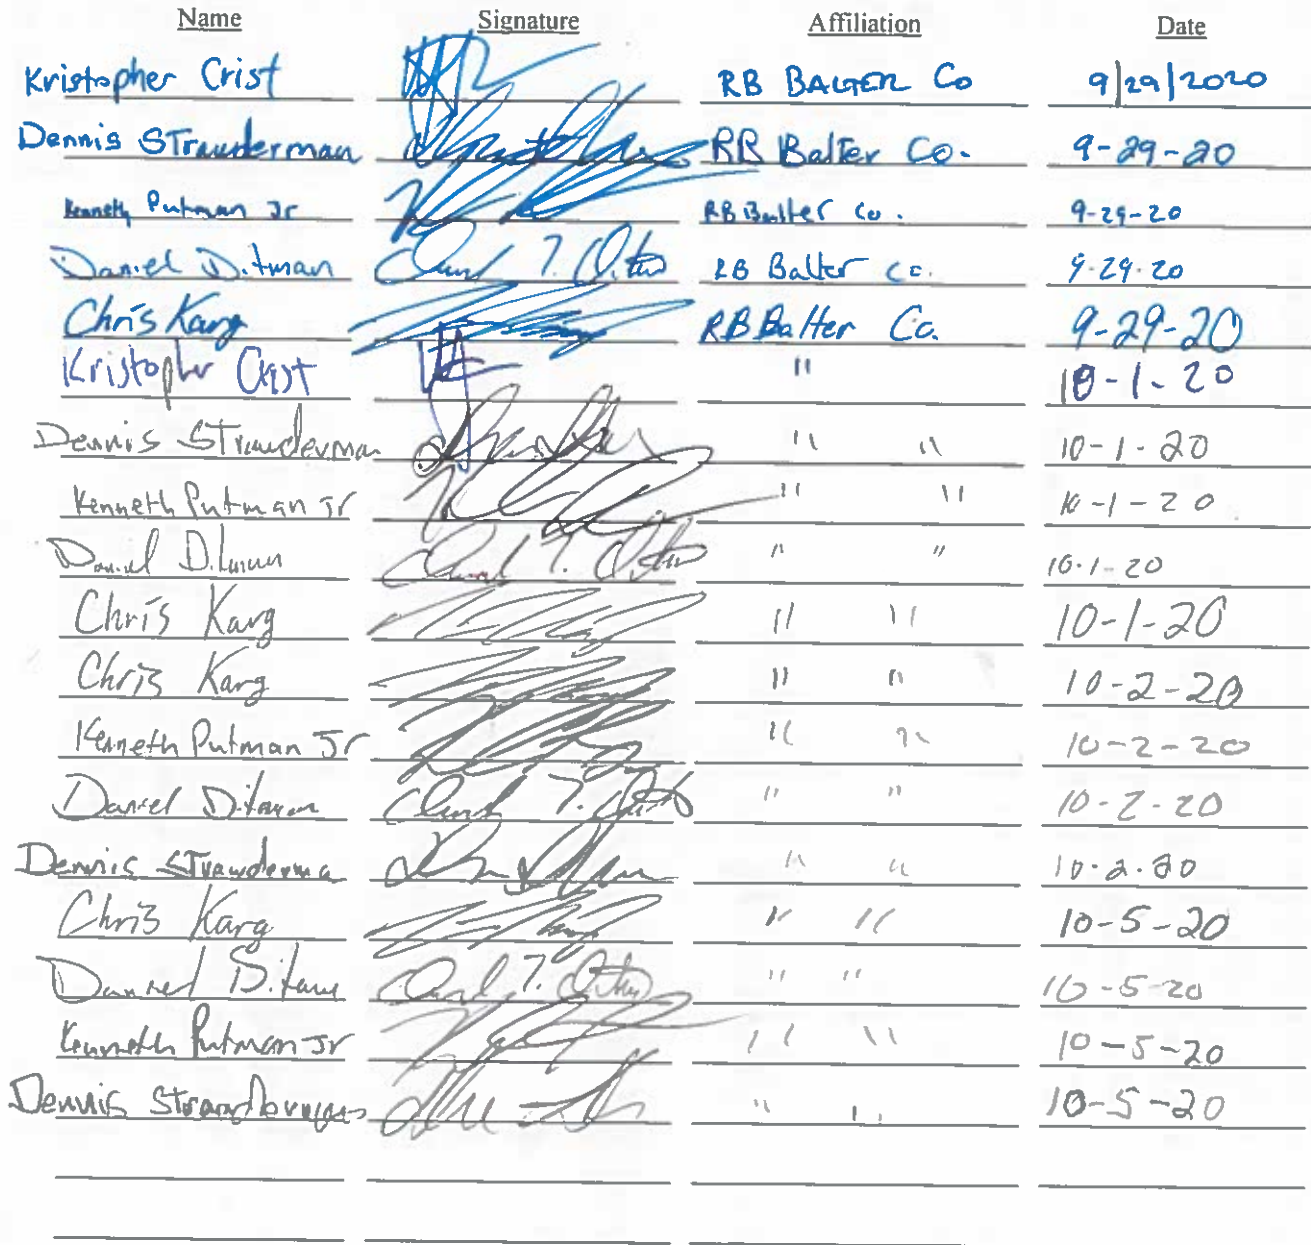 Name Signature Affiliation Date
Kristopher Crist RB BALTER Co 9/29/2020
Dennis STrawderman RB Balter Co. 9-29-20
Kenneth Putman Jr RB Balter Co. 9-29-20
Daniel Ditman Daniel T. Ditman RB Balter Co. 9-29-20
Chris Karg RB Balter Co. 9-29-20
Kristopher Crist " 10-1-20
Dennis STrawderman " " 10-1-20
Kenneth Putman Jr " " 10-1-20
Daniel Ditman Daniel T. Ditman " " 10-1-20
Chris Karg " " 10-1-20
Chris Karg " " 10-2-20
Kenneth Putman Jr " " 10-2-20
Daniel Ditman Daniel T. Ditman " " 10-2-20
Dennis STrawderma " " 10-2-20
Chris Karg " " 10-5-20
Daniel Ditman Daniel T. Ditman " " 10-5-20
Kenneth Putman Jr " " 10-5-20
Dennis Strawderman " " 10-5-20